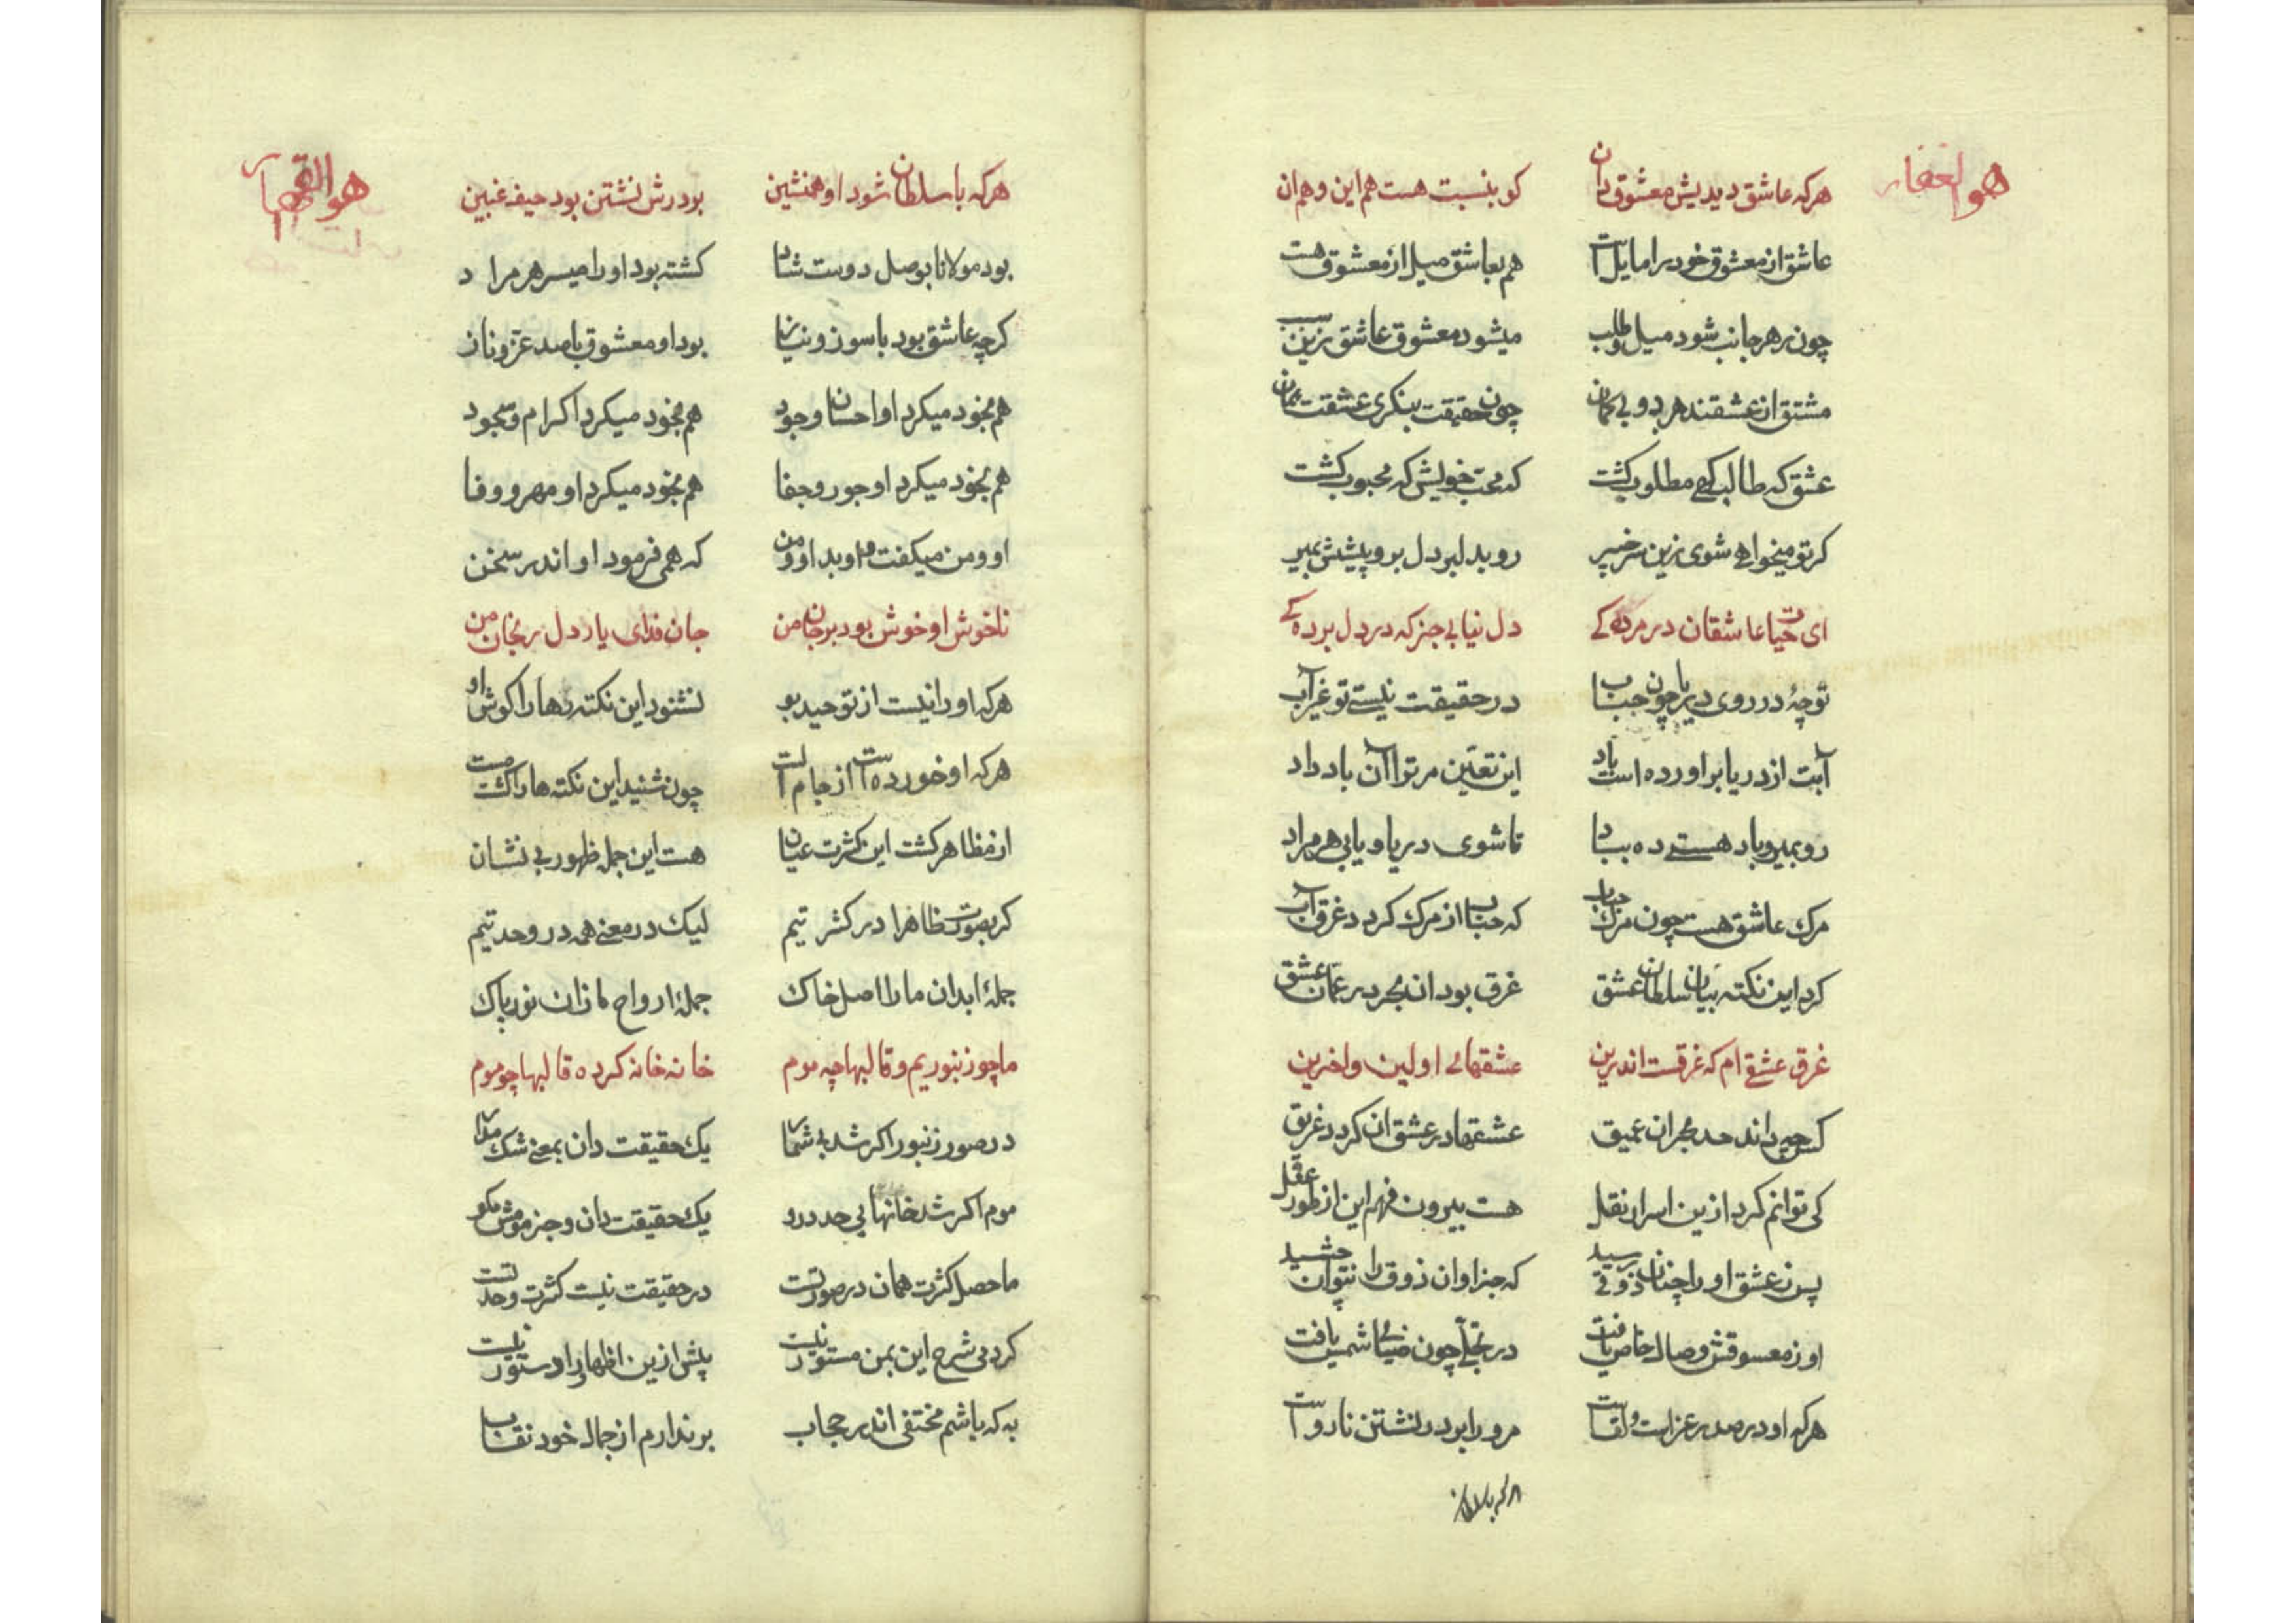 هو الغفار
هرکه عاشق دیدیش معشوق دان کو بنسبت هست هم این و هم ان
عاشق از معشوق خود را مایل است هم بعاشق میل از معشوق هست
چون ز هر جانب شود میل و طلب میشود معشوق عاشق زین سبب
مشتق از عشقند هر دو بی کمان چون حقیقت بنکری عشقت همان
عشق که طالب کهی مطلوب کشت که محب خویش که محبوب کشت
کر تو میخواهی شوی زین سر خبیر رو بدلبر دل بر و پیشش بمیر
ای حیات عاشقان در مردکی دل نیابی جز که در دل بردکی
تو چۀ در روی دریا چون حباب در حقیقت نیستی تو غیر آب
آبت از دریا براورده است باد این تعین مر ترا آن باد داد
رو بمیر و باد هستی ده بباد تا شوی دریا و یابی هر مراد
مرک عاشق هست چون مرک حباب که حباب از مرک کردد غرق آب
کرد این نکته بیان سلطان عشق غرق بود ان بحر در عمان عشق
غرق عشقی ام که غرقست اندرین عشقهای اولین و اخرین
کس چه داند حد بحر ان عمیق عشقها در عشق ان کردد غریق
کی توانم کرد ازین اسرار نقل هست بیرون فهم این از طور عقل
پس ز عشق او را چنان ذوقی رسید که جز او ان ذوق را نتوان چشید
او ز معسوقش وصال خاص یافت در تجلی چون ضیای شمس یافت
هرکه او در صدر عزلت و لقاست مر ورا بر در نشتن نارواست
هرکه باسلطان
هو القهار
هرکه با سلطان شود او همنشین بود درش نشتن بود حیف غبین
بود مولانا بوصل دوست شاد کشته بود او را میسر هر مراد
کرچه عاشق بود با سوز و نیاز بود او معشوق با صد عز و ناز
هم بخود میکرد او احسان وجود هم بخود میکرد اکرام و سجود
هم بخود میکرد او جور و جفا هم بخود میکرد او مهر و وفا
او و من میکفت او بد او و من که همی فرمود او اندر سخن
ناخوش او خوش بود بر جان من جان فدای یار دل رنجان من
هرکه او را نیست از توحید بو نشنود این نکته‌ها را کوش او
هرکه او خورده است از جام الست چون شنید این نکته‌ها را کشت مست
از مظاهر کشت این کثرت عیان هست این جمله ظهور بی نشان
کر بصورت ظاهرا در کثرتیم لیک در معنی همه در وحدتیم
جملۀ ابدان ما را اصل خاک جملۀ ارواح ما زان نور پاک
ما چو زنبوریم و قالبها چه موم خانه خانه کرده قالبها چو موم
در صور زنبور اکر شد بی شمار یک حقیقت دان بمعنی شک مدار
موم اکر شد خانها بی حد درو یک حقیقت دان و جز مومش مکو
ماحصل کثرت همان در صورتست در حقیقت نیست کثرت وحدتست
کردمی شرح این بمن مستور نیست پیش ازین اظهار را دستور نیست
به که باشم مختفی اندر حجاب بر ندارم از جمال خود نقاب